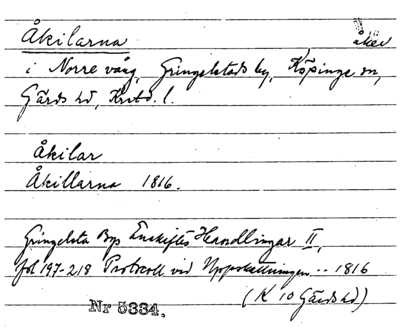 Åkilarna åker
i Norre vång, Gringelstads by, Köpinge sn,
Gärds hd, Krstd. l.
Åkilar
Åkillarna 1816.
Gringelsta Bys Enskiftes Handlingar II,
fol 197-218 Protocoll vid Uppskattningen -- 1816
(K 10 Gärds hd)
Nr 5334.